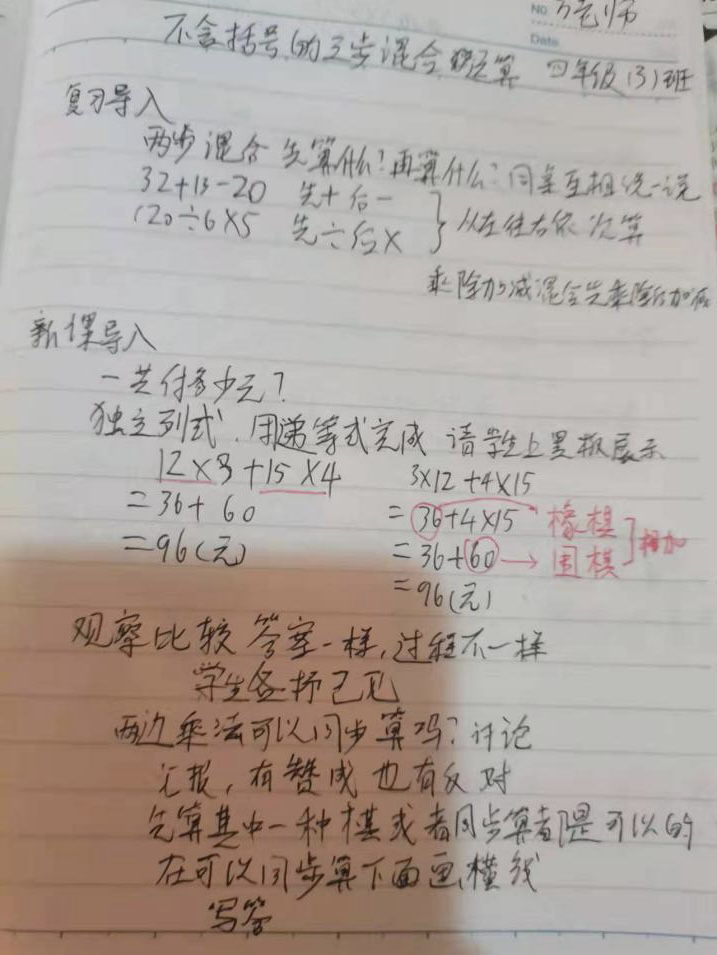 No.
老师
Date
不含括号的三步混合运算 四年级(3)班
复习导入
两步混合先算什么?再算什么?同桌互相说一说
32+13-20 先+后-
120÷6×5 先÷后×
从左往右依次算
乘除加减混合先乘除后加减
新课导入
一共付多少元?
独立列式,用递等式完成 请学生上黑板展示
12×3+15×4
=36+60
=96(元)
3×12+4×15
=36+4×15 橡棋
=36+60→围棋
相加
=96(元)
观察比较 答案一样,过程不一样
学生各抒己见
两边乘法可以同步算吗?讨论
汇报,有赞成也有反对
先算其中一种棋或者同步算都是可以的
在可以同步算下面画横线
写答